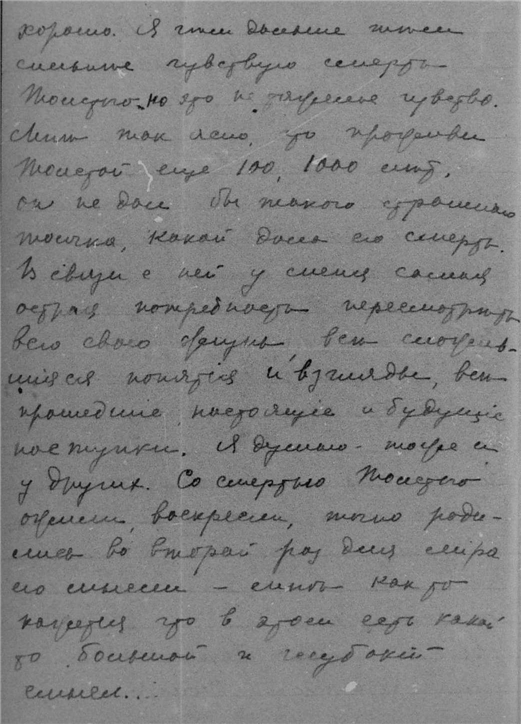 хорошо. Я чем дальше тем
сильнее чувствую смерть
Толстого, но это не тяжелое чувство.
Мне так ясно, что проживи
Толстой еще 100, 1000 лет,
он не дал бы такого страшного
толчка, какой дала его смерть.
В связи с ней у меня самая
острая потребность пересмотреть
всю свою жизнь, все сложив-
шіяся понятія и взгляды, все
прошедшіе настоящіе и будущіе
поступки. Я думаю - тоже и
у других. Со смертью Толстого
ожили, воскресли, точно роди-
лись во второй раз для міра
его мысли – мне как то
кажется что в этом есть какой
то большой и глубокій
смысл...